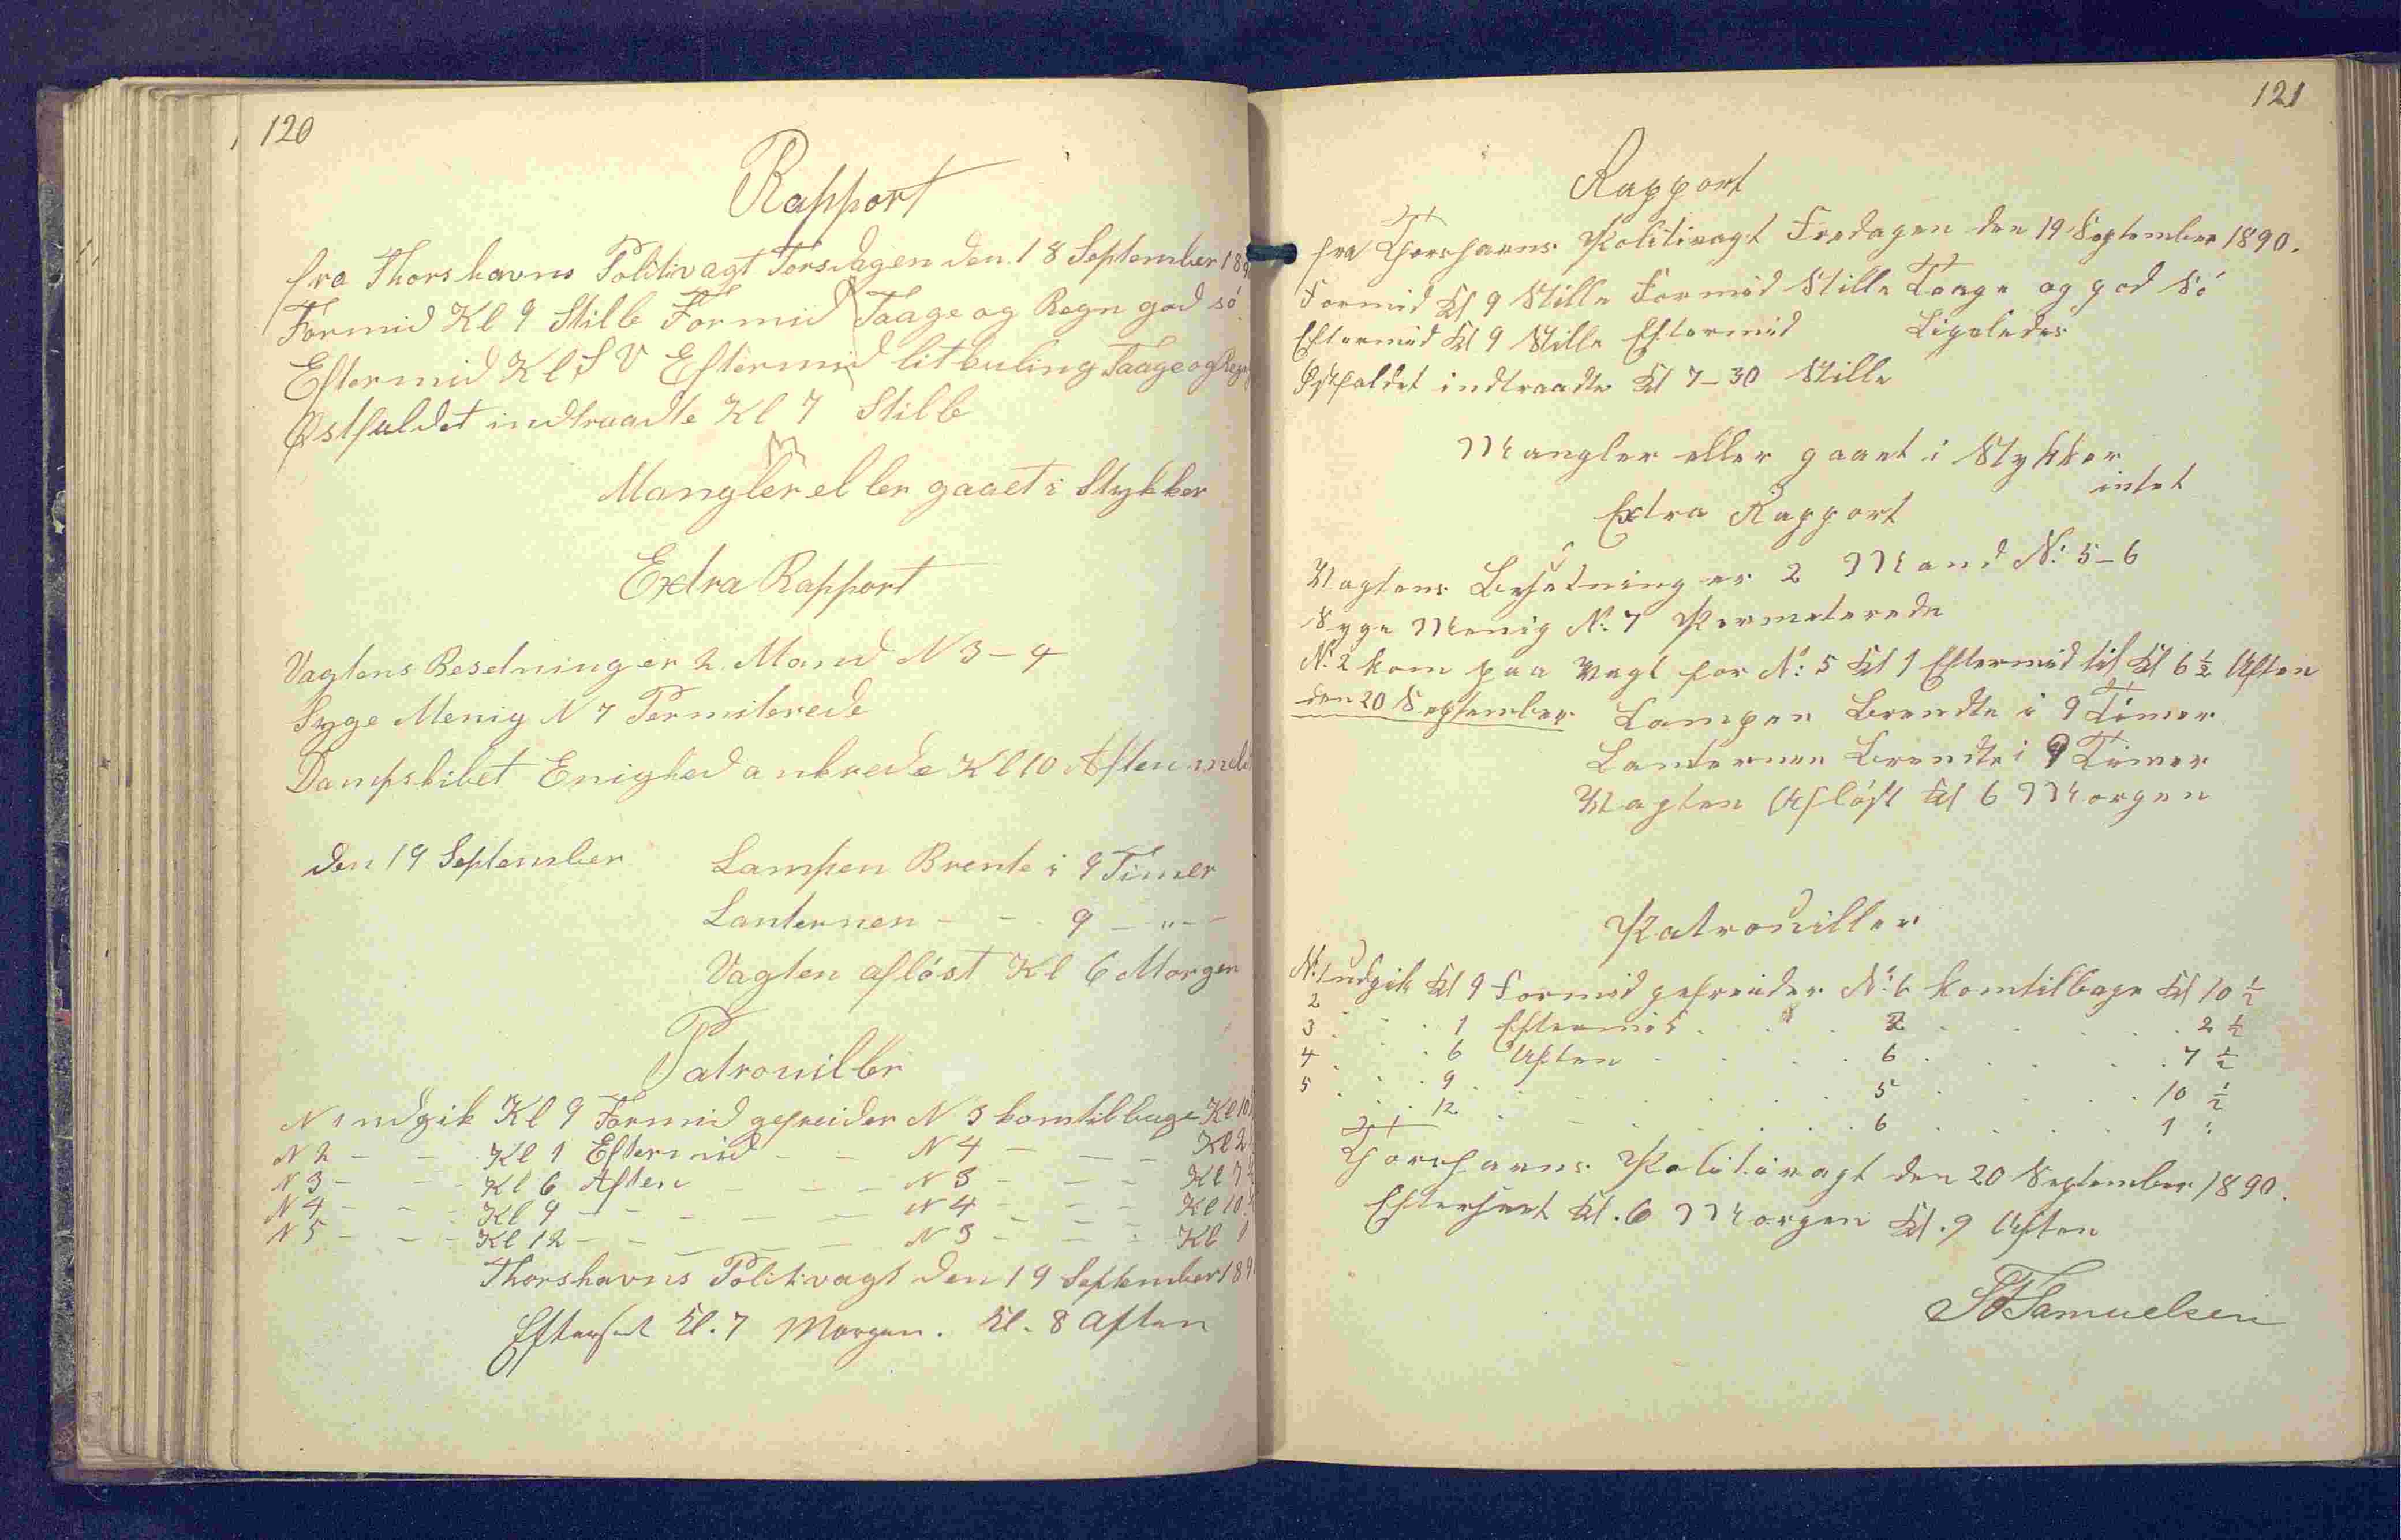 120
Rapport
fra Thorshavns Politivagt Torsdagen den 18 September 189
Formid Kl 9 Stille Formid Taage og Regn god só
Eftermid Kl S V Eftermid lit kuling Taage og Regn
Østfaldet indtraadte Kl 7 Stille
Mangler eller gaaet i Stykker
Extra Rapport
Vagtens Besetning er 2 Mand N 3 - 4
Syge Menig N 7 Permiterede
Dampskibet Enighed ankrede Kl 10 Aften
den 19 September Lampen Brente i 9 Timer
Lanternen - - 9 - " - -
Vagten aflöst Kl 6 Morgen
Patrouiller
N 1 udgik Kl 9 Formid gefreider N 3 kom tilbage Kl 10
N 2 - - Kl 1 Eftermid - - N 4 - - - Kl 2
N 3 - - Kl 6 Aften - - - N 3 - - - Kl 7
N 4 - - Kl 9 - - - - - N 4 - - - Kl 10
N 5 - - Kl 12 - - - - - N 3 - - - Kl 1
Thorshavns Politivagt den 19 September 189
Efterset Kl. 7 Morgen. Kl. 8 Aften
121
Rapport
fra Thorshavns Politivagt Fredagen den 19 September 1890.
Formid Kl 9 Stille Formid Stille Taage og god Só
Eftermid Kl 9 Stille Eftermid Ligeledes
Østfaldet indtraadte Kl 7-30 Stille
Mangler eller gaaet i Stykker
intet
Extra Rapport
Vagtens Besetning er 2 Mand N: 5-6
Syge Menig N: 7 Permeterede
N: 2 kom paa Vagt for N: 5 Kl 1 Eftermid til Kl 6 ½ Aften
den 20 September Lampen Brendte i 9 Timer
Lanternen Brendte i 9 Timer
Vagten Aflöst Kl 6 Morgen
Patrouiller
N: 1 udgik Kl 9 Formid gefreider N: 6 kom tilbage Kl 10 ½
2 . . . 1 Eftermid . . . 2 . . . . 2 ½
3 . . . 6 Aften . . . 6 . . . . 7 ½
4 . . . 9 . . . . . 5 . . . . 10 ½
5 . . . 12 . . . . . 6 . . . . 1 :
Thorshavns Politivagt den 20 September 1890.
Efterseet Kl. 6 Morgen Kl. 9 Aften
Samuelsen